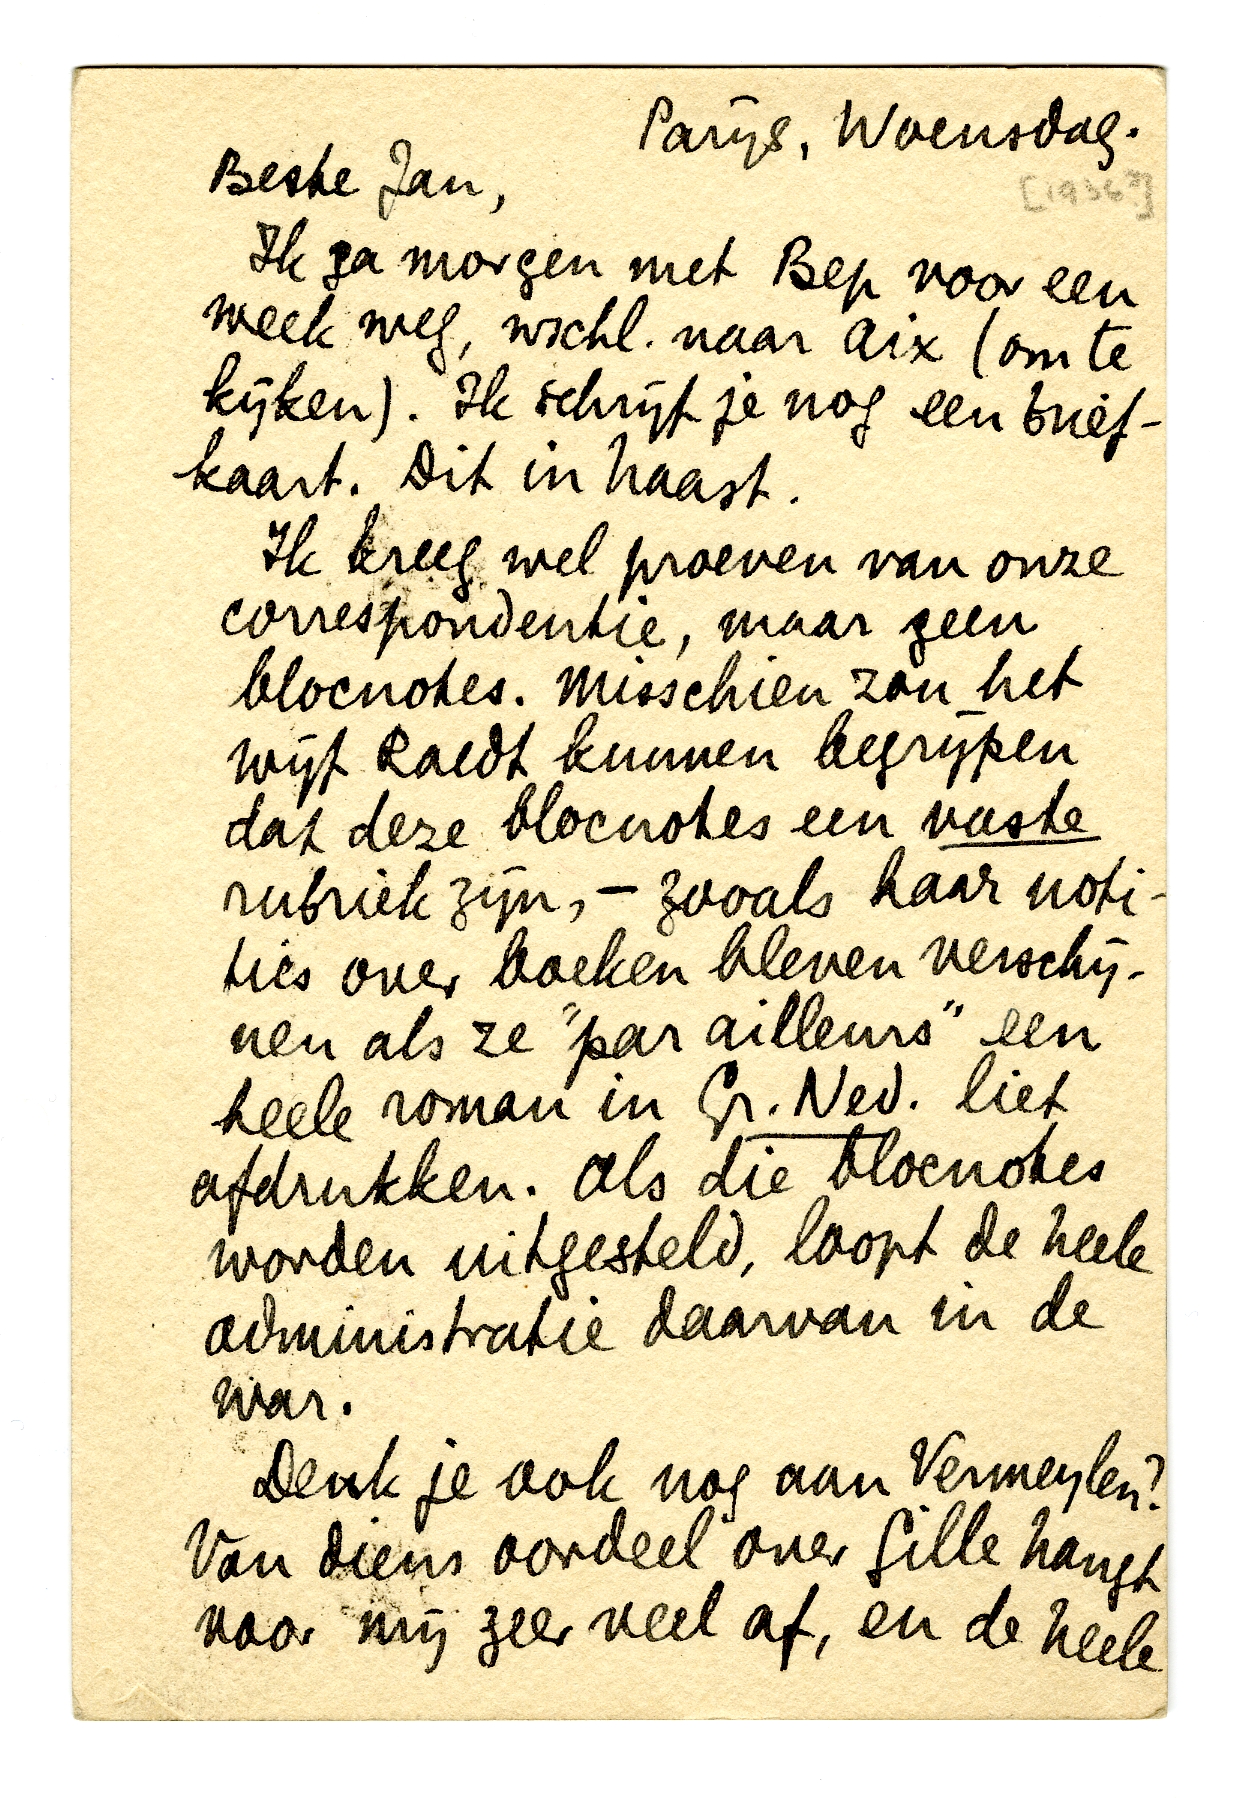 Parijs, Woensdag.
[1936?]
Beste Jan,
Ik ga morgen met Bep voor een
week weg, wschl. naar Aix (om te
kijken). Ik schrijf je nog een brief-
kaart. Dit in haast.
Ik kreeg wel proeven van onze
correspondentie, maar geen
blocnotes. Misschien zou het
wijf Raedt kunnen begrijpen
dat deze blocnotes een vaste
rubriek zijn, – zooals haar noti-
ties over boeken bleven verschij-
nen als ze "par ailleurs" een
heele roman in Gr. Ned. liet
afdrukken. Als die blocnotes
worden uitgesteld, loopt de heele
administratie daarvan in de
war.
Denk je ook nog aan Vermeylen?
Van diens oordeel over Gille hangt
voor mij zeer veel af, en de heele